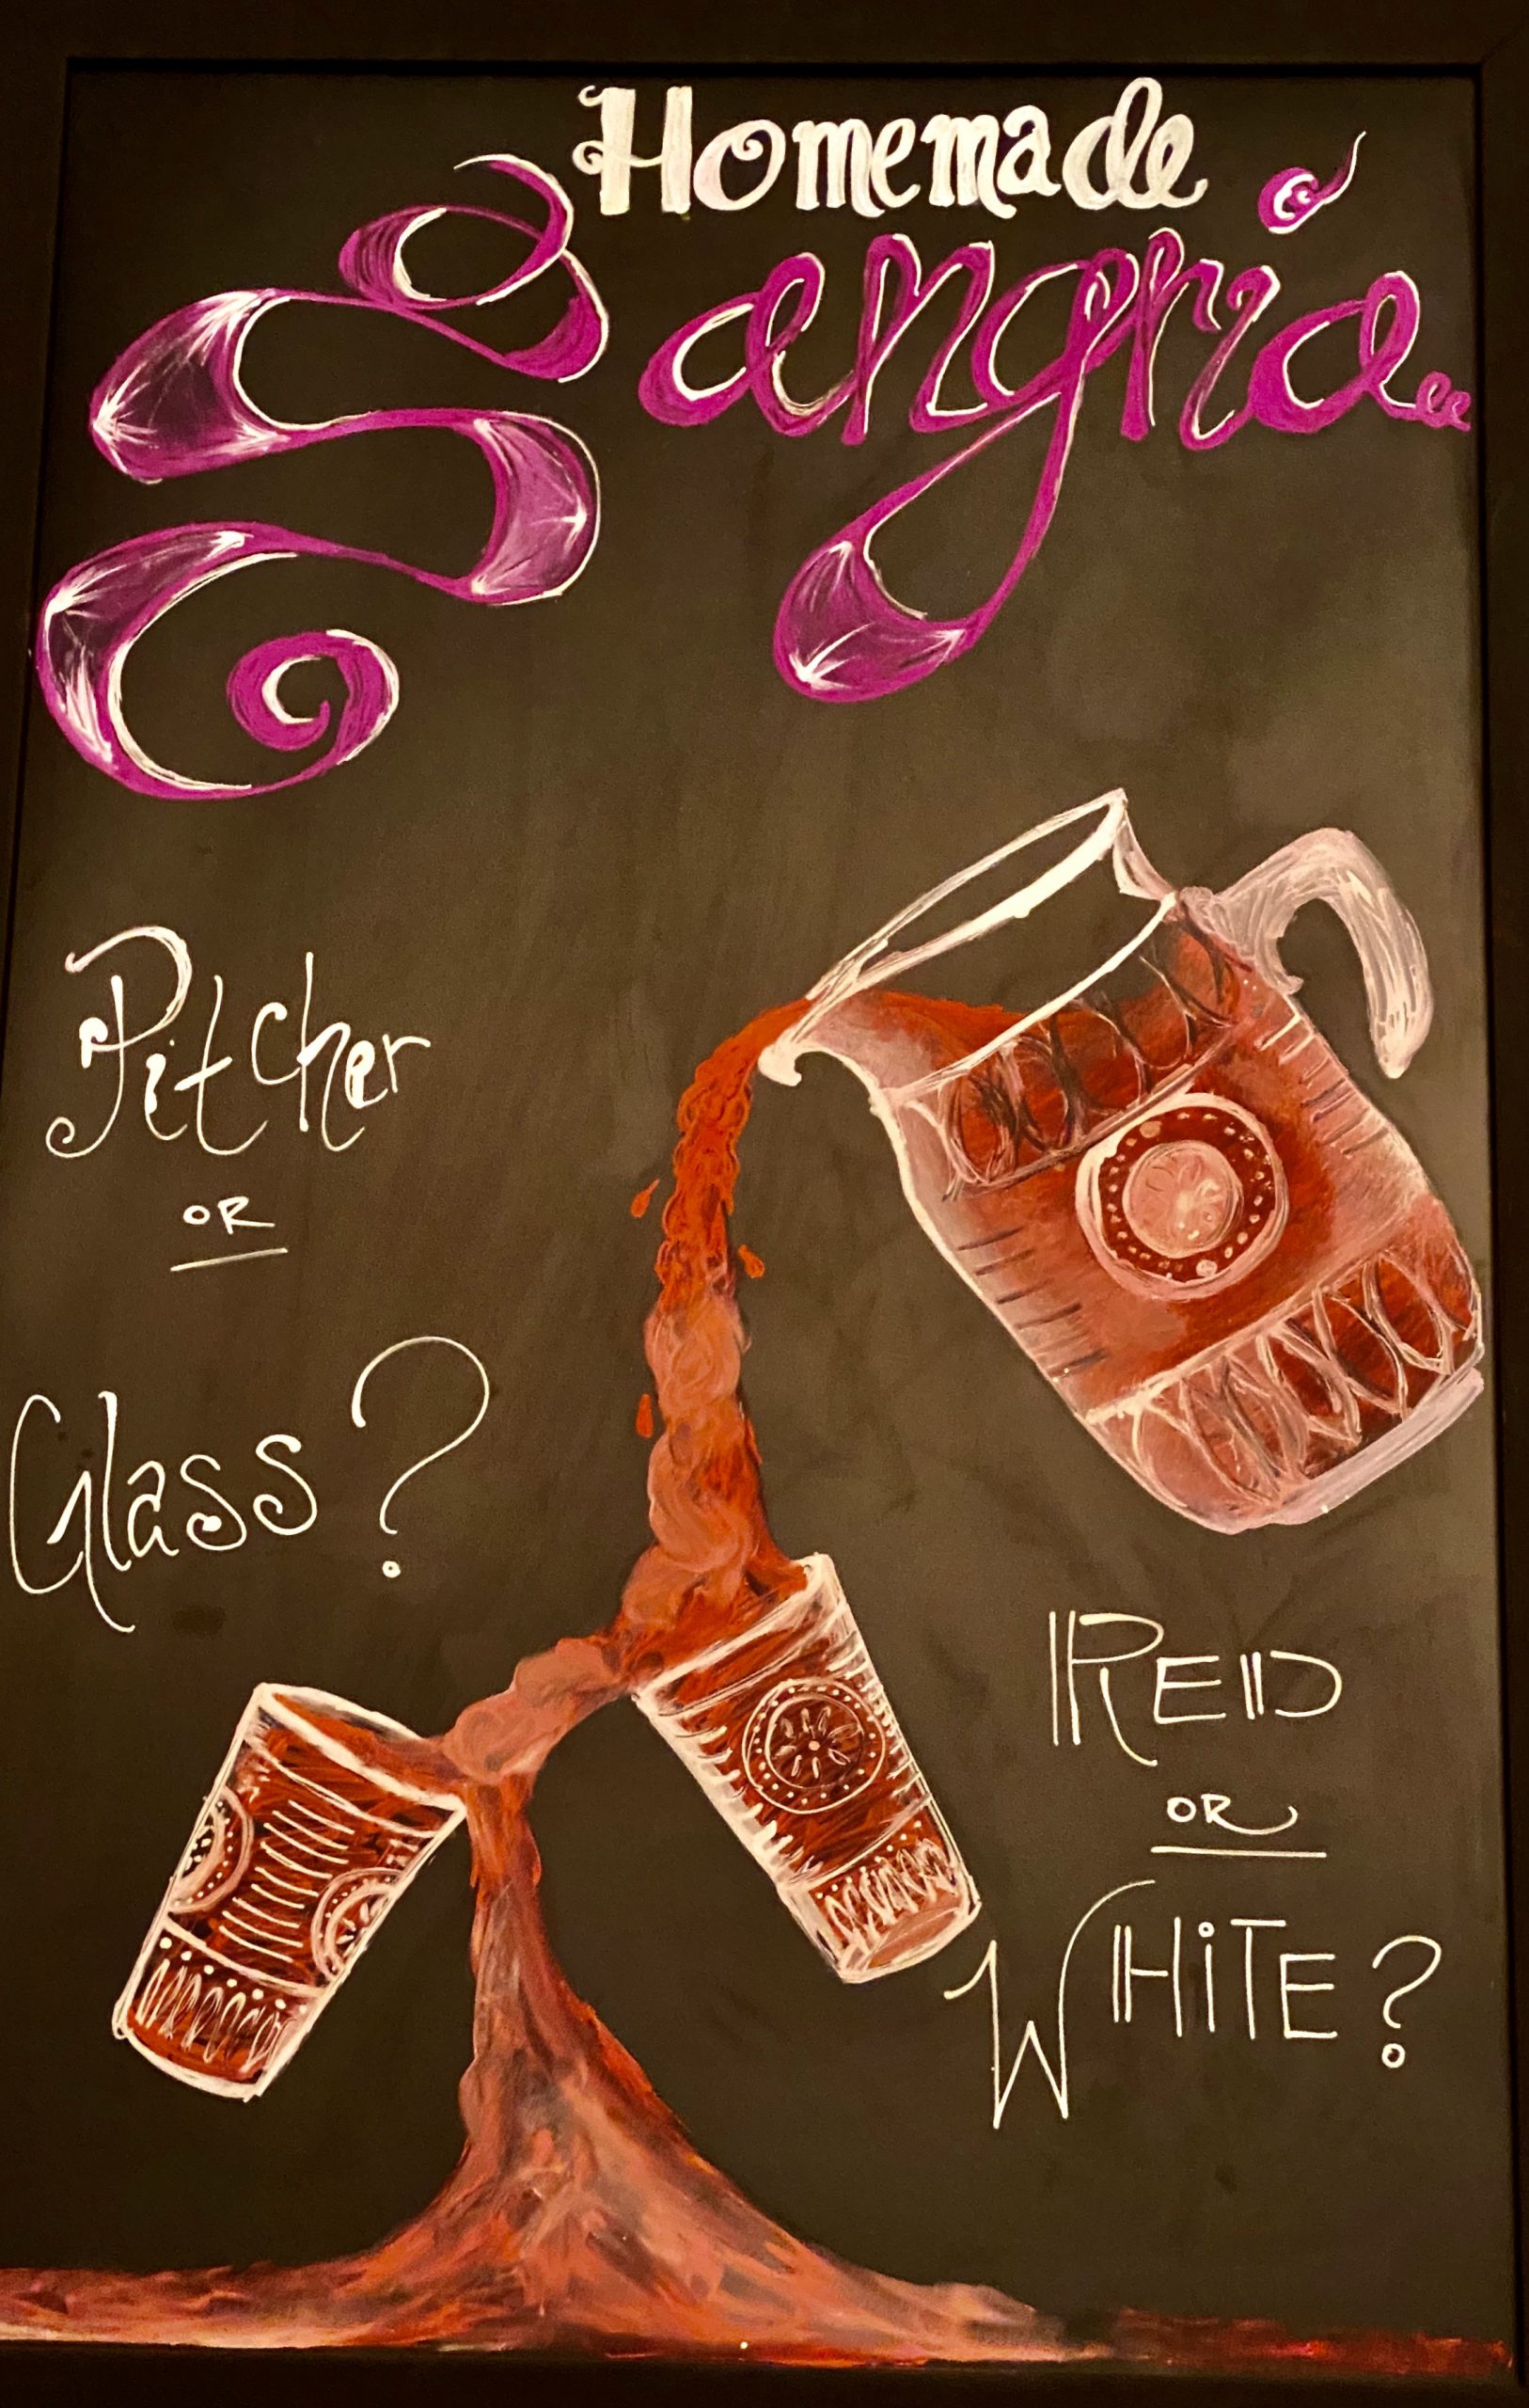 Homemade
Sangria
Pitcher
OR
Glass?
RED
OR
WHiTE?